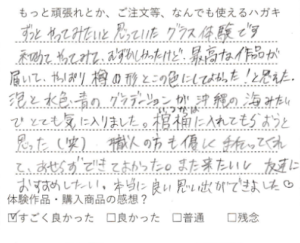 もっと頑張れとか、ご注文等、なんでも使えるハガキ
ずっとやってみたいと思っていたグラス体験です
初めてやってみて、むずかしかったけど、最高な作品が
届いて、やっぱり樽の形とこの色にしてよかった！と思えた。
泡と水色、青のグラデーションが沖縄の海みたい
でとても気に入りました。棺桶に入れてもらおうと
思った（笑） 職人の方も優しく手伝ってくれ
て、あせらずできてよかった。また来たいし 友達に
おすすめしたい。本当に良い思い出ができました♡
体験作品・購入商品の感想？
☑すごく良かった □良かった □普通 □残念